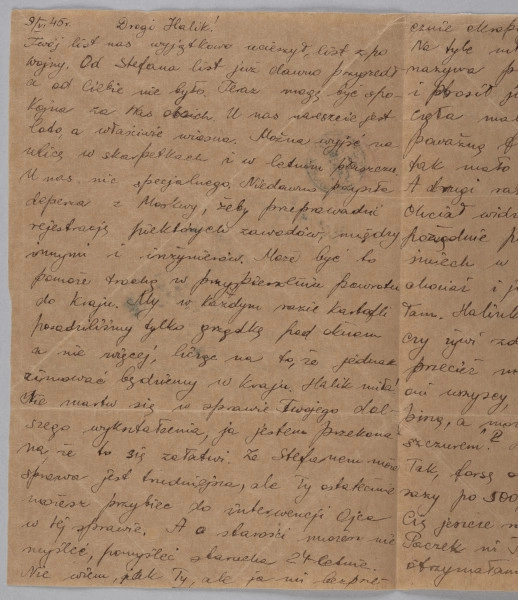 9/VI 45r. Drogi Halik!
Twój list nas wyjątkowo ucieszył, list z po
wojny. Od Stefana list już dawno przyszedł
a od Ciebie nie było. Teraz mogę być spo-
kojna za Was obich. U nas nareszcie jest
lato, a właściwie wiosna. Można wyjść na
ulicę w skarpetkach i w letnim płaszczu.
U nas nic specjalnego. Niedawno przyszła
depesza z Moskwy, żeby przeprowadzić
rejestrację niektórych zawodów, między
innymi i inżynierów. Może być to
pomoże trochę w przyspieszeniu powrotu
do kraju. My w każdym razie kartofli
posadziliśmy tylko grządkę pod oknem
a nie więcej, licząc na to, że jednak
zimować będziemy w kraju. Halik miła!
Nie martw się w sprawie Twojego dal-
szego wykształcenia, ja jestem przekona
na, że to się załatwi. Ze Stefanem
sprawa jest trudniejsza, ale Ty ostatecznie
możesz przybiec do interwencji Ojca
w tej sprawie. A o starości możesz nie
myśleć, pomyśleć starucha 24 letnia.
Nie wiem, jak Ty, ale ja
cznie
Na tyle
nazywa
i prosił
częła
poważną
tak mało
A drugi raz
Chciał
porządnie
w
chociaż i
tam. Halinko
czy żywi
przecież
oni wszyscy,
a
szczurem?
Tak, forsę
razy po 500
Cię jeszcze
Paczek ni
otrzymałam